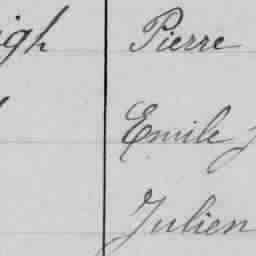 Pierre
Emile
Julien